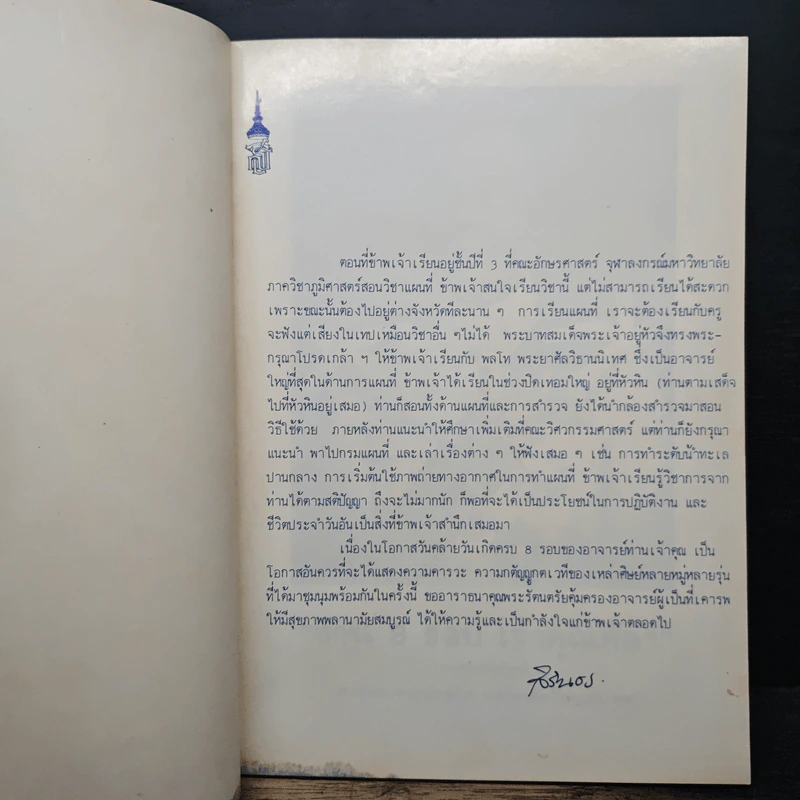 ตอนที่ข้าพเจ้าเรียนอยู่ชั้นปีที่ 3 ที่คณะอักษรศาสตร์ จุฬาลงกรณ์มหาวิทยาลัย
ภาควิชาภูมิศาสตร์สอนวิชาแผนที่ ข้าพเจ้าสนใจเรียนวิชานี้ แต่ไม่สามารถเรียนได้สะดวก
เพราะขณะนั้นต้องไปอยู่ต่างจังหวัดทีละนาน ๆ การเรียนแผนที่ เราจะต้องเรียนกับครู
จะฟังแต่เสียงในเทปเหมือนวิชาอื่น ๆไม่ได้ พระบาทสมเด็จพระเจ้าอยู่หัวจึงทรงพระ-
กรุณาโปรดเกล้า ฯ ให้ข้าพเจ้าเรียนกับ พลโท พระยาศัลวิธานนิเทศ ซึ่งเป็นอาจารย์
ใหญ่ที่สุดในด้านการแผนที่ ข้าพเจ้าได้เรียนในช่วงปิดเทอมใหญ่ อยู่ที่หัวหิน (ท่านตามเสด็จ
ไปที่หัวหินอยู่เสมอ) ท่านก็สอนทั้งด้านแผนที่และการสำรวจ ยังได้นำกล้องสำรวจมาสอน
วิธีใช้ด้วย ภายหลังท่านแนะนำให้ศึกษาเพิ่มเติมที่คณะวิศวกรรมศาสตร์ แต่ท่านก็ยังกรุณา
แนะนำ พาไปกรมแผนที่ และเล่าเรื่องต่าง ๆ ให้ฟังเสมอ ๆ เช่น การทำระดับน้ำทะเล
ปานกลาง การเริ่มต้นใช้ภาพถ่ายทางอากาศในการทำแผนที่ ข้าพเจ้าเรียนรู้วิชาการจาก
ท่านได้ตามสติปัญญา ถึงจะไม่มากนัก ก็พอที่จะได้เป็นประโยชน์ในการปฏิบัติงาน และ
ชีวิตประจำวันอันเป็นสิ่งที่ข้าพเจ้าสำนึกเสมอมา
เนื่องในโอกาสวันคล้ายวันเกิดครบ 8 รอบของอาจารย์ท่านเจ้าคุณ เป็น
โอกาสอันควรที่จะได้แสดงความคารวะ ความกตัญญูกตเวทีของเหล่าศิษย์หลายหมู่หลายรุ่น
ที่ได้มาชุมนุมพร้อมกันในครั้งนี้ ขออาราธนาคุณพระรัตนตรัยคุ้มครองอาจารย์ผู้เป็นที่เคารพ
ให้มีสุขภาพพลานามัยสมบูรณ์ ได้ให้ความรู้และเป็นกำลังใจแก่ข้าพเจ้าตลอดไป
สิรินธร.